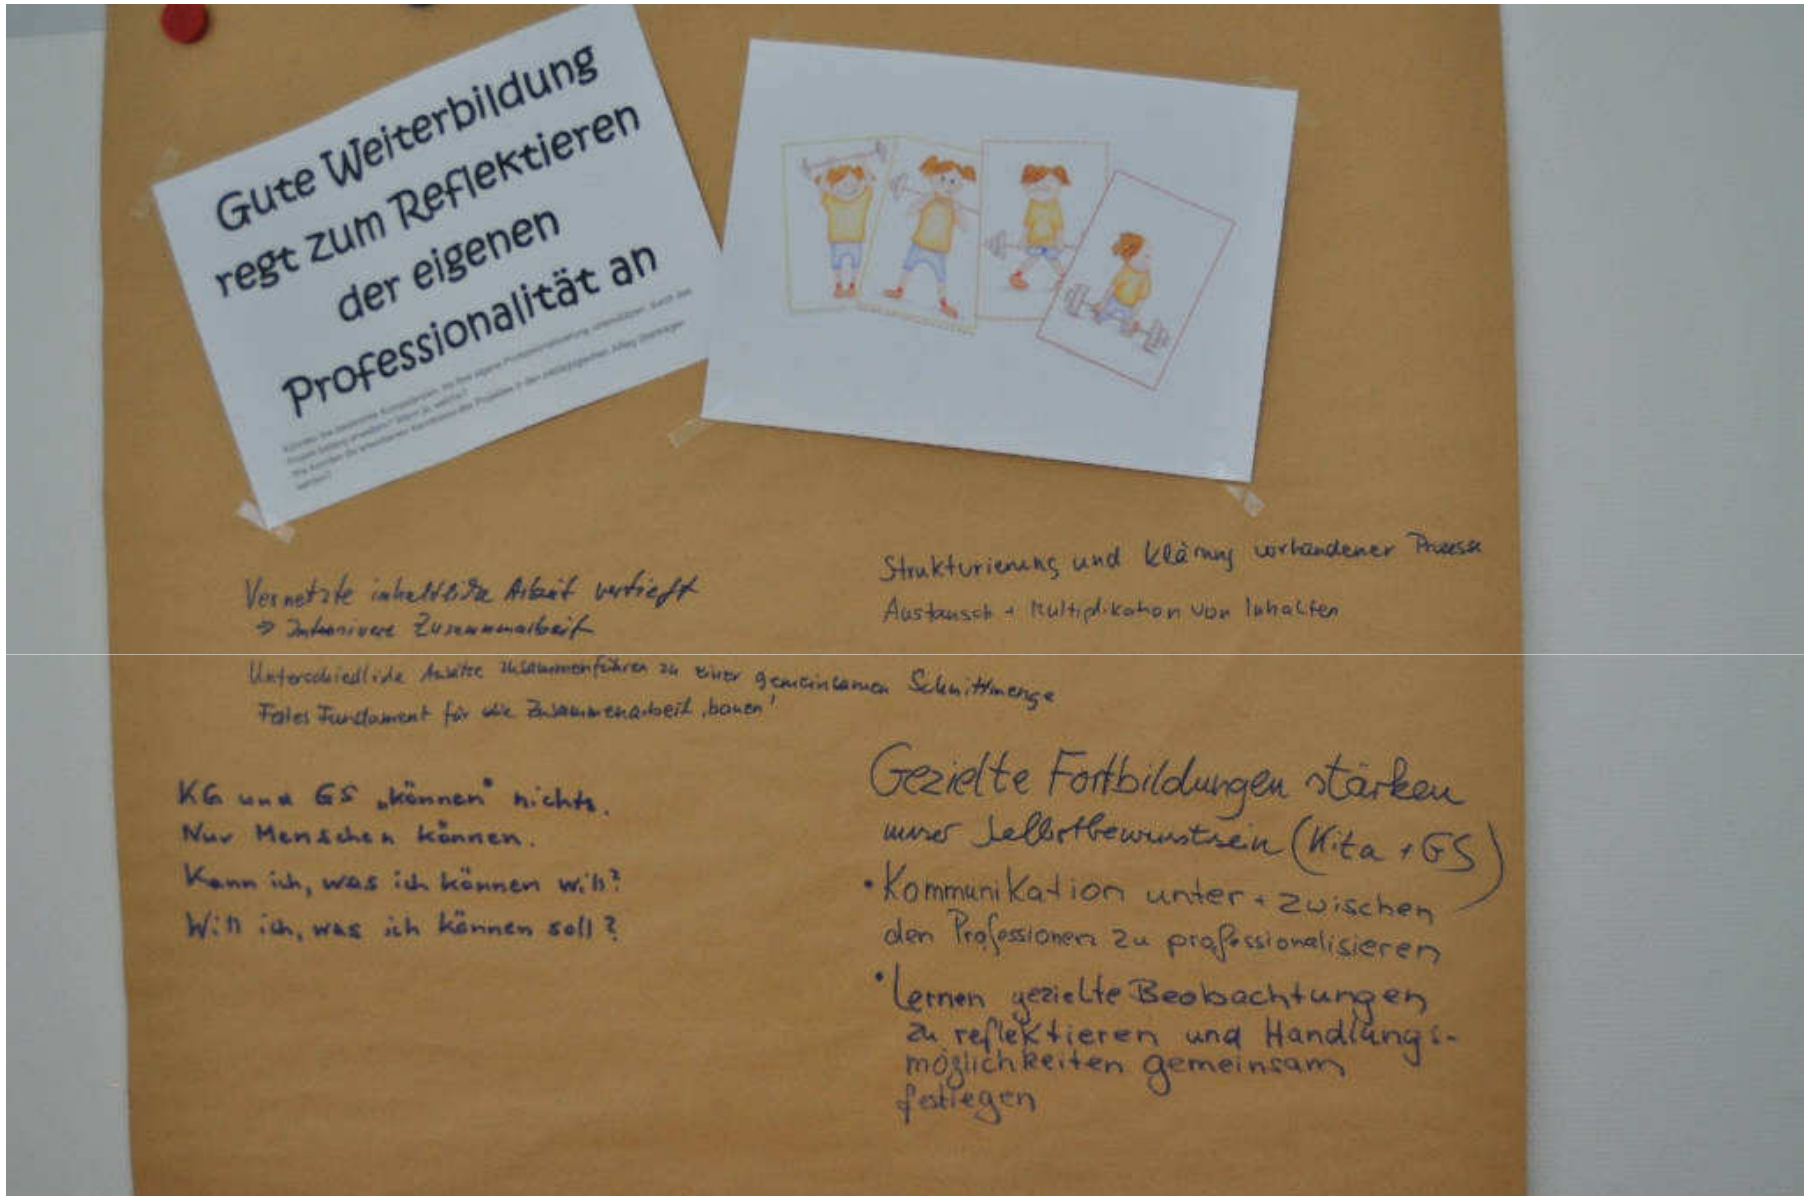 Gute Weiterbildung
regt zum Reflektieren
der eigenen
Professionalität an
Strukturierung und Klärung vorhandener Prozesse
Austausch + Multiplikation von Inhalten
Vernetzte inhaltliche Arbeit vertieft
→ Intensivere Zusammenarbeit
Unterschiedliche Ansätze zusammenführen zu einer gemeinsamen Schnittmenge
Festes Fundament für die Zusammenarbeit „bauen"
KG und GS „können" nichts.
Nur Menschen können.
Kann ich, was ich können will?
Will ich, was ich können soll?
Gezielte Fortbildungen stärken
unser Selbstbewusstsein (Kita + GS)
• Kommunikation unter + zwischen
den Professionen zu professionalisieren
• Lernen gezielte Beobachtungen
zu reflektieren und Handlungs-
möglichkeiten gemeinsam
festlegen